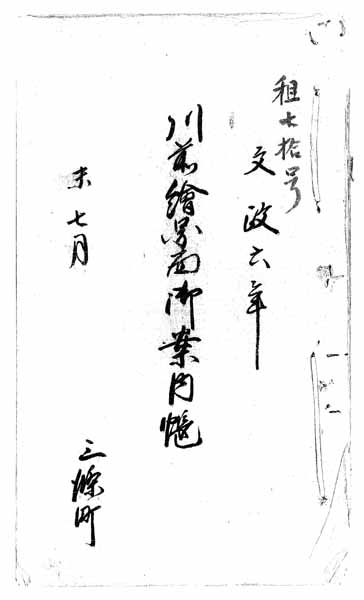 租七拾号
文政六年
川前繪図面御案内帳
未七月
三條町